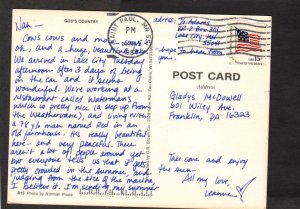 GOD'S COUNTRY
Nan -
Cows cows and more cows
oh, and a huge beautiful lake.
We arrived in Lake City Tuesday
afternoon after 3 days of being
in the car and it seems
wonderful. We're working at a
restaurant called Waterman's
which is pretty nice (a step up from
the Weathervane), and living with
a 76 y/o man named Red in an
old farmhouse. It's really beautiful
here - and very peaceful. There
aren't a lot of people around yet
but everyone tells us that it gets
pretty crowded in the summer, and
judging from the size of the marina
I believe it. I'm sending my summer
SAINT PAUL, MN
PM
address:
L. Adams
RR 2 Box
Lake City, MN
55041
hope
you
to hear from
USA 13c
POST CARD
Address:
Gladys McDowell
601 Wiley Ave.
Franklin, PA 16323
Take care and enjoy
the sun.
All my love,
Leanne
Photo by Norman Poole